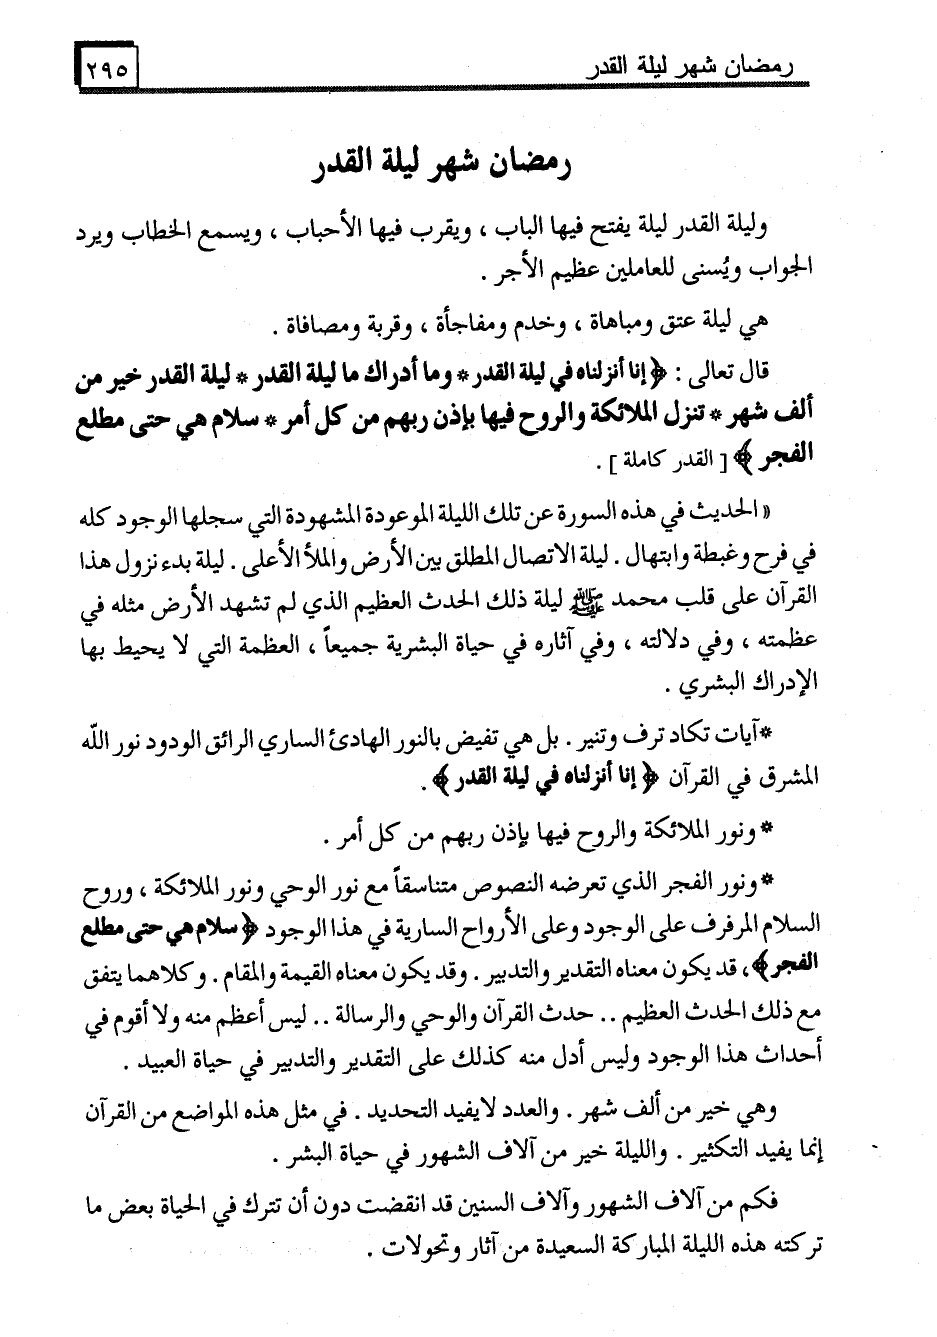 رمضان شهر ليلة القدر
٢٩٥
رمضان شهر ليلة القدر
وليلة القدر ليلة يفتح فيها الباب ، ويقرب فيها الأحباب ، ويسمع الخطاب ويرد
الجواب ويُسنى للعاملين عظيم الأجر .
هي ليلة عتق ومباهاة ، وخدم ومفاجأة ، وقربة ومصافاة .
قال تعالى : ﴿ إنا أنزلناه في ليلة القدر * وما أدراك ما ليلة القدر * ليلة القدر خير من
ألف شهر * تنزل الملائكة والروح فيها بإذن ربهم من كل أمر * سلام هي حتى مطلع
الفجر ﴾ [ القدر كاملة ] .
« الحديث في هذه السورة عن تلك الليلة الموعودة المشهودة التي سجلها الوجود كله
في فرح وغبطة وابتهال . ليلة الاتصال المطلق بين الأرض والملأ الأعلى . ليلة بدء نزول هذا
القرآن على قلب محمد ﷺ ليلة ذلك الحدث العظيم الذي لم تشهد الأرض مثله في
عظمته ، وفي دلالته ، وفي آثاره في حياة البشرية جميعاً ، العظمة التي لا يحيط بها
الإدراك البشري .
* آيات تكاد ترف وتنير . بل هي تفيض بالنور الهادئ الساري الرائق الودود نور اللّه
المشرق في القرآن ﴿ إنا أنزلناه في ليلة القدر ﴾ .
* ونور الملائكة والروح فيها بإذن ربهم من كل أمر .
* ونور الفجر الذي تعرضه النصوص متناسقاً مع نور الوحي ونور الملائكة ، وروح
السلام المرفرف على الوجود وعلى الأرواح السارية في هذا الوجود ﴿ سلام هي حتى مطلع
الفجر ﴾ ، قد يكون معناه التقدير والتدبير . وقد يكون معناه القيمة والمقام . وكلاهما يتفق
مع ذلك الحدث العظيم .. حدث القرآن والوحي والرسالة .. ليس أعظم منه ولا أقوم في
أحداث هذا الوجود وليس أدل منه كذلك على التقدير والتدبير في حياة العبيد .
وهي خير من ألف شهر . والعدد لا يفيد التحديد . في مثل هذه المواضع من القرآن
إنما يفيد التكثير . والليلة خير من آلاف الشهور في حياة البشر .
فكم من آلاف الشهور وآلاف السنين قد انقضت دون أن تترك في الحياة بعض ما
تركته هذه الليلة المباركة السعيدة من آثار وتحولات .